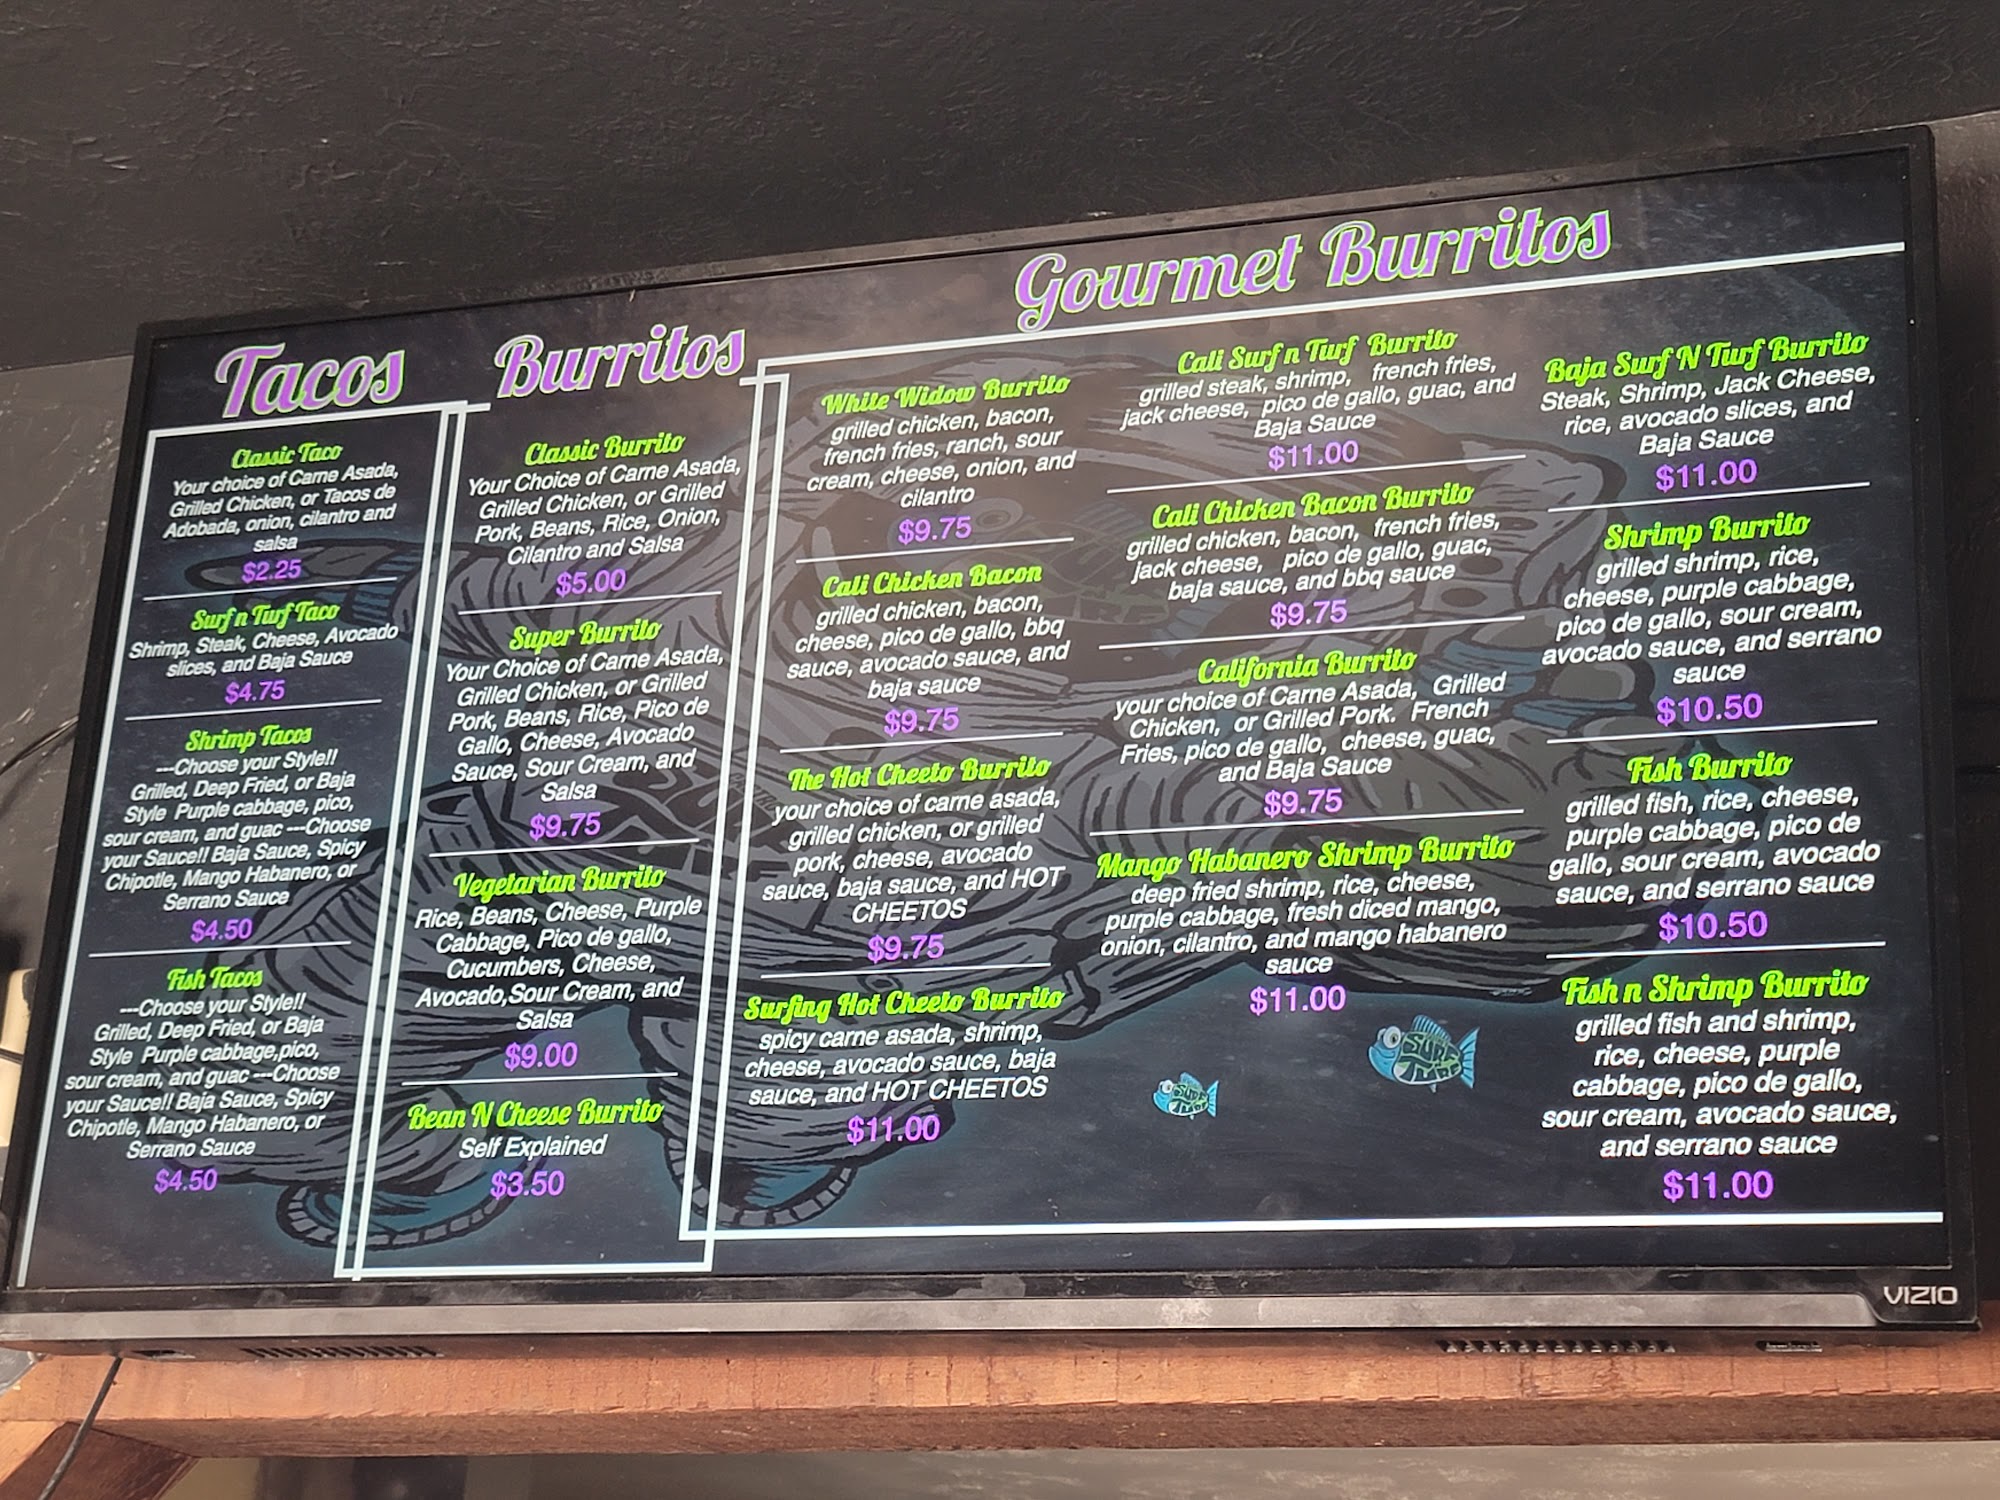 Tacos
Classic Taco
Your choice of Carne Asada,
Grilled Chicken, or Tacos de
Adobada, onion, cilantro and
salsa
$2.25
Surf n Turf Taco
Shrimp, Steak, Cheese, Avocado
slices, and Baja Sauce
$4.75
Shrimp Tacos
---Choose your Style!!
Grilled, Deep Fried, or Baja
Style Purple cabbage, pico,
sour cream, and guac ---Choose
your Sauce!! Baja Sauce, Spicy
Chipotle, Mango Habanero, or
Serrano Sauce
$4.50
Fish Tacos
---Choose your Style!!
Grilled, Deep Fried, or Baja
Style Purple cabbage,pico,
sour cream, and guac ---Choose
your Sauce!! Baja Sauce, Spicy
Chipotle, Mango Habanero, or
Serrano Sauce
$4.50
Burritos
Classic Burrito
Your Choice of Carne Asada,
Grilled Chicken, or Grilled
Pork, Beans, Rice, Onion,
Cilantro and Salsa
$5.00
Super Burrito
Your Choice of Carne Asada,
Grilled Chicken, or Grilled
Pork, Beans, Rice, Pico de
Gallo, Cheese, Avocado
Sauce, Sour Cream, and
Salsa
$9.75
Vegetarian Burrito
Rice, Beans, Cheese, Purple
Cabbage, Pico de gallo,
Cucumbers, Cheese,
Avocado,Sour Cream, and
Salsa
$9.00
Bean N Cheese Burrito
Self Explained
$3.50
Gourmet Burritos
White Widow Burrito
grilled chicken, bacon,
french fries, ranch, sour
cream, cheese, onion, and
cilantro
$9.75
Cali Chicken Bacon
grilled chicken, bacon,
cheese, pico de gallo, bbq
sauce, avocado sauce, and
baja sauce
$9.75
The Hot Cheeto Burrito
your choice of carne asada,
grilled chicken, or grilled
pork, cheese, avocado
sauce, baja sauce, and HOT
CHEETOS
$9.75
Surfing Hot Cheeto Burrito
spicy carne asada, shrimp,
cheese, avocado sauce, baja
sauce, and HOT CHEETOS
$11.00
Cali Surf n Turf Burrito
grilled steak, shrimp, french fries,
jack cheese, pico de gallo, guac, and
Baja Sauce
$11.00
Cali Chicken Bacon Burrito
grilled chicken, bacon, french fries,
jack cheese, pico de gallo, guac,
baja sauce, and bbq sauce
$9.75
California Burrito
your choice of Carne Asada, Grilled
Chicken, or Grilled Pork. French
Fries, pico de gallo, cheese, guac,
and Baja Sauce
$9.75
Mango Habanero Shrimp Burrito
deep fried shrimp, rice, cheese,
purple cabbage, fresh diced mango,
onion, cilantro, and mango habanero
sauce
$11.00
Baja Surf N Turf Burrito
Steak, Shrimp, Jack Cheese,
rice, avocado slices, and
Baja Sauce
$11.00
Shrimp Burrito
grilled shrimp, rice,
cheese, purple cabbage,
pico de gallo, sour cream,
avocado sauce, and serrano
sauce
$10.50
Fish Burrito
grilled fish, rice, cheese,
purple cabbage, pico de
gallo, sour cream, avocado
sauce, and serrano sauce
$10.50
Fish n Shrimp Burrito
grilled fish and shrimp,
rice, cheese, purple
cabbage, pico de gallo,
sour cream, avocado sauce,
and serrano sauce
$11.00
VIZIO